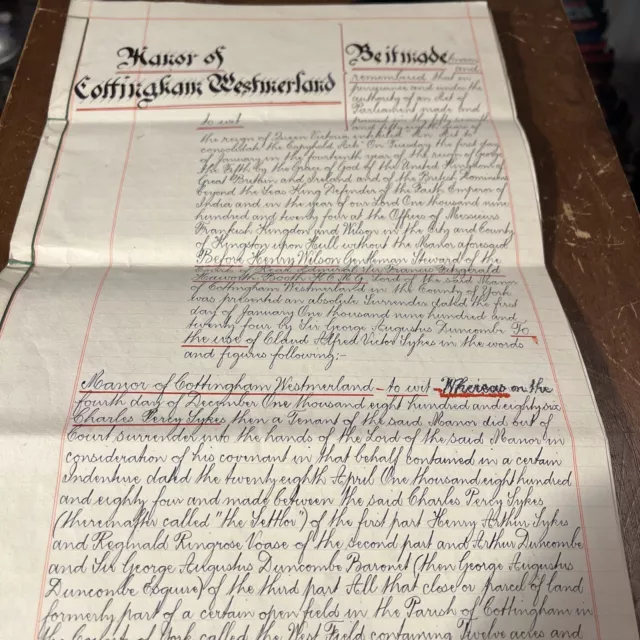 Manor of
Cottingham Westmerland
to wit
Be it made known
and
remembered that in
pursuance and under the
authority of an Act of
Parliament made and
passed in the fifty
the reign of Queen Victoria An Act to
consolidate the Copyhold Acts On Tuesday the first day
of January in the fourteenth year of the reign of George
the Fifth by the Grace of God of the United Kingdom of
Great Britain and Ireland and of the British Dominions
beyond the Seas King Defender of the Faith Emperor of
India and in the year of our Lord One thousand nine
hundred and twenty four at the Office of Messieurs
Frankish Kingdon and Wilson in the City and County
of Kingston upon Hull without the Manor aforesaid
Before Henry Wilson Gentleman Steward of the
Court of Read Admiral Sir Francis Fitzgerald
Haworth Booth K.C.M.G. Lord of the said Manor
of Cottingham Westmerland in the County of York
was presented an absolute Surrender dated the first
day of January One thousand nine hundred and
twenty four by Sir George Augustus Duncombe To
the use of Claud Alfred Victor Sykes in the words
and figures following:-
Manor of Cottingham Westmerland - to wit - Whereas on the
fourth day of December One thousand eight hundred and eighty six
Charles Percy Sykes then a Tenant of the said Manor did out of
Court surrender into the hands of the Lord of the said Manor in
consideration of his covenant in that behalf contained in a certain
Indenture dated the twenty eighth April One thousand eight hundred
and eighty four and made between the said Charles Percy Sykes
(thereinafter called "the Settlor") of the first part Henry Arthur Sykes
and Reginald Ringrose Voase of the second part and Arthur Duncombe
and Sir George Augustus Duncombe Baronet (then George Augustus
Duncombe Esquire) of the third part All that close or parcel of land
formerly part of a certain open field in the Parish of Cottingham in
the County of York called the West Field containing Twelve acres and